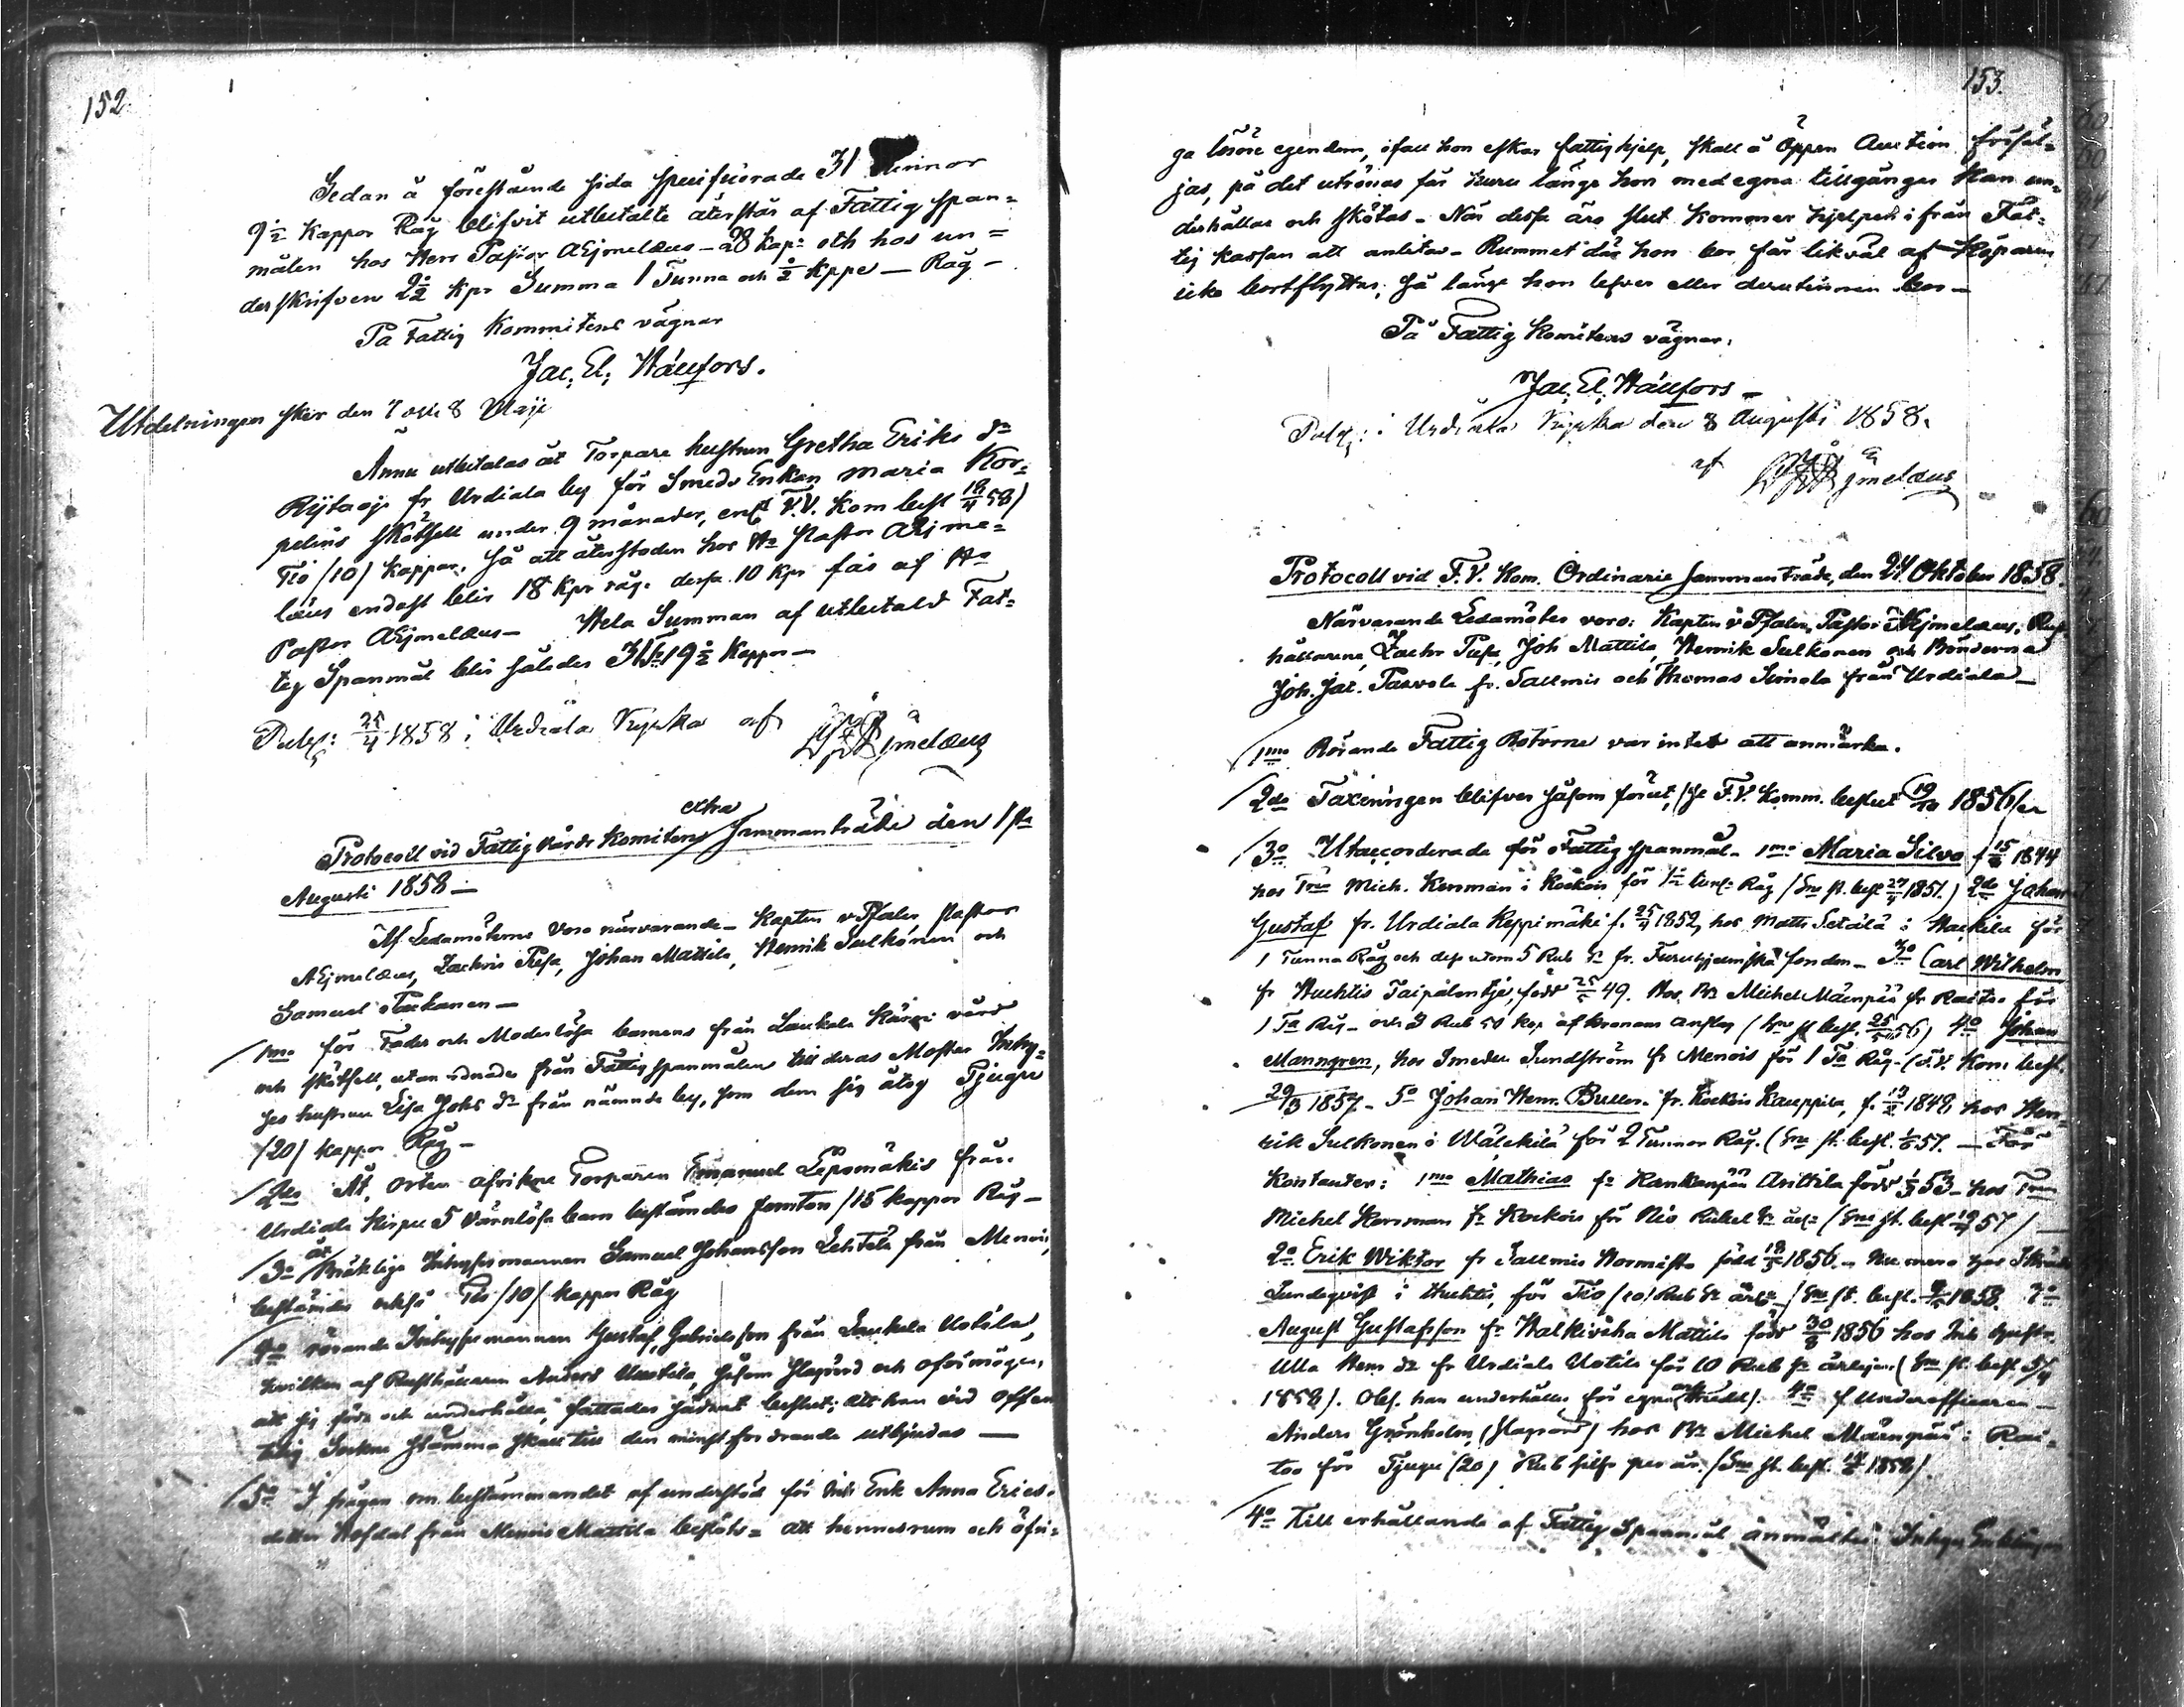 152.
Sedan å förestående sida specificerade 31 Tunnor
9½ Kappor Råg blifvit utbetalte återstår af Fattig span=
målen hos Herr Pastor Aejmelæus – 28 kap: och hos un=
derskrifven 2½ kpr Summa 1 Tunna och ½ kppe — Råg –
På Fattig Kommitens vägnar
Jac. El. Wállfors.
Utdelningen sker den 7 och 8 Maji
Ännu utbetalas åt Torpare hustrun Gretha Eriks dr
Rijtaoja fr Urdiala by för Smeds Enkan Maria Kor=
pelins skötsell under 9 månader, enl. F.V. Kom besl 18/4 58)
Tio /10/ kappar. Så att återstoden hos Hr Pastor Aejme=
læus endast blir 18 kpr råg. dessa 10 kpr fås af Hr
Pastor Aejmelæus – Hela Summan af utbetald Fat=
tig Spanmål blir således 31 19½ Kappor —
Publ: 25/4 1858 i Urdiala Kyrka af Aejmelæus
extra
Protocoll vid Fattig Vårds Komitens Sammanträde den 1sta
Augusti 1858 —
Af Ledamöterne voro närvarande – Kapten v Pfaler Pastor
Aejmelæus, Zachris Pusa, Johan Mattila, Henrik Sulkonen och
Samuel
1mo för Fader och Moderlösa barnens från Laukela vård
och skötsell, utan från Fattig spanmålen till deras Moster Inhy=
ses hustrun Lisa Johs dr från nämnde by, som dem sig åtog Tjugu
/20/ kappor Råg –
2do Åt Orten afvikne Torparen Emanuel Lepomäkis från
Urdiala 5 värnlösa barn bestämdes femton /15 kappor Råg –
3o åt Bräklige Inhysesmannen Samuel Johansson Lehtelä från Menois,
bestämdes också Tio /10/ kappor Råg
4o rörande Inhyses mannen Gustaf Gabrielsson från Laukela Uotila,
hvilken af Rusthållaren Anders Uotila, såsom slagrörd och oförmögen,
att sig föda och underhålla, fattades sådant beslut; att han vid offen
telig Sockne stämma skall till den minst fordrande utbjudas —
5o I frågan om bestämmandet af understöd för Inh Enk Anna Erics=
dotter Hofdal från Menois Mattila beslöts = att hennes rum och öfri=
153.
ga lösöre egendom, ifall hon eskar fattighjelp, skall å öppen Auction försäl=
jas, på det utrönas får huru länge hon med egna tillgångar kan un=
derhållas och skötas – När dessa äro slut kommer hjelpen ifrån Fat=
tig kassan att anlitas – Rummet där hon bor får likväl af Köparen
icke bortflyttas, så länge hon lefver eller derutinnen bor —
På Fattig Komitens vägnar.
Jac. El. Wállfors –
Publ: i Urdiala Kyrka den 8 Augusti 1858.
af Aejmelæus
Protocoll vid F.V. Kom. Ordinarie Sammanträde, den 24 Oktober 1858.
Närvarande Ledamöter voro: Kapten v Pfaler, Pastor Aejmelæus, Rust
hållarena, Zachr Pusa, Joh Mattila, Henrik Sulkonen och Bönderna
Joh. Jac. Parvola fr. Salmis och Thomas Simola från Urdiala —
1mo Rörande Fattig Rotorne var intet att anmärka.
2do Taxeringen blifver såsom förut, /Se F.V. Komm. beslut 19/10 1856/
3o Utaccorderade för Fattig spanmål – 1mo Maria Silvo f 15/ 1844
hos Mich. Kerman i Kockois för 1½ tun: Råg /Sns st. besl 27/4 1851.) 2do Johan
Gustaf fr. Urdiala f. 25/4 1852, hos Matts Setälä i Hackila för
1 Tunna Råg och dess utom 5 Rub Sr fr. fonden – 3o Carl Wilhelm
fr Huchtis född 25/ 49. Hos Bn Michel Mäenpää fr Raitoo för
1 Ta Råg – och 3 Rub 50 kop af kronans anslag (Sns st besl. 25/ 56) 4o Johan
Manngren, hos Smeden Sundström fr Menois för 1 Ta Råg – (F.V. Kom. besl.
29/3 1857 – 5o Johan Henr. Buller. fr. Kockois Kauppila, f. 1848, hos Hen=
rik Sulkonen i Wälckilä för 2 Tunnor Råg. (Sns st. besl. 57. — För
Kontanter: 1mo Mathias fr Anttila född 53 – hos
Michel Kerrman fr Kockois för Nio Rubel Sr år: (Sns st. besl. 57) —
2o Erik Wiktor fr Salmis född 1856. – Numera hos
Lundqvist i Huchtis, för Tio /10/ Rub Sr årl: /Sns st. besl. 1858. 3o
August Gustafsson fr Walkiviha Mattila född 30/8 1856 hos Inh hustr.
Ulla Henr dr fr Urdiala Uotila för 10 Rub Sr årligen. (Sns st. besl. 5/4
1858). Obs. han underhålles för egna medel). 4o f Underofficeren —
Anders Grönholm, (slagrörd) hos Bn Michel Mäenpää i Rai=
too för Tjugu /20/ Rub silfr per år. /Sns st. besl. 1858/.
4o Till erhållande af Fattig Spanmål anmälte: Inhys